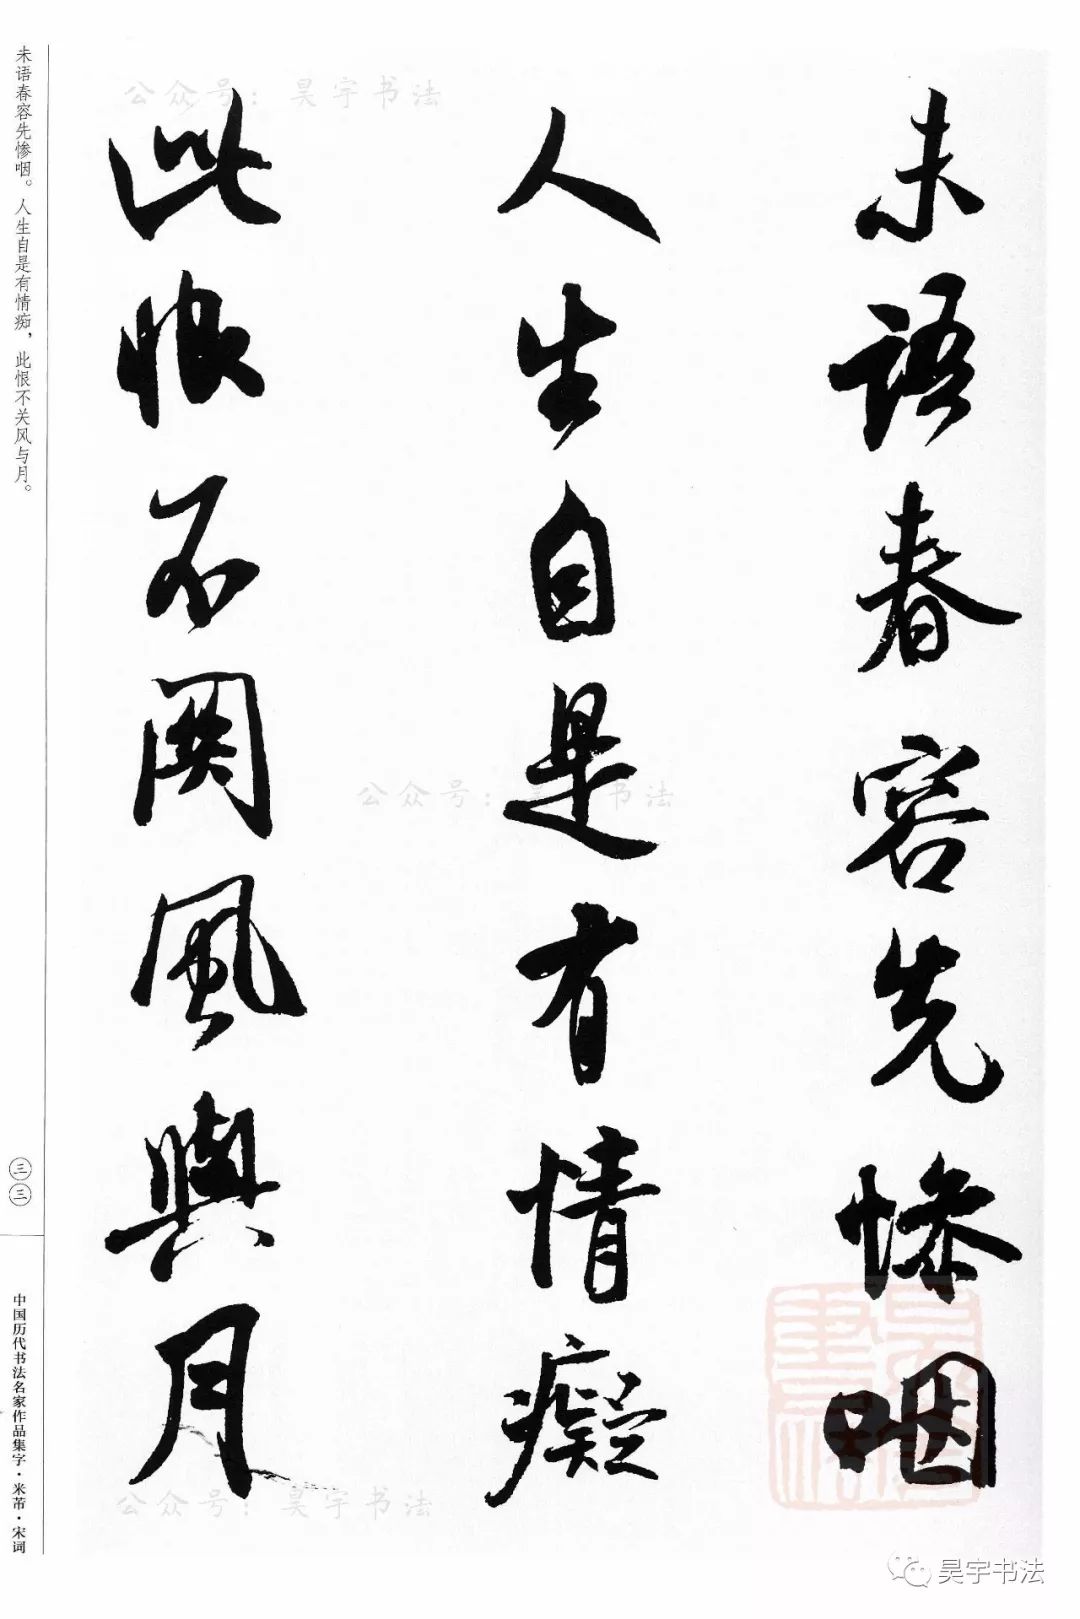 未語春容先惨咽
人生自是有情癡
此恨不関風與月
未语春容先惨咽。人生自是有情痴，此恨不关风与月。
三三
中国历代书法名家作品集字·米芾·宋词
公众号：昊宇书法
公众号：昊宇书法
公众号：昊宇书法
昊宇书法